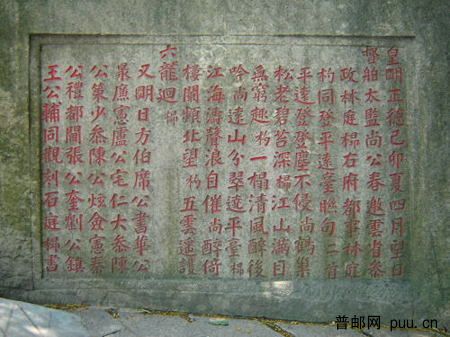 皇明正德己卯夏四月望日
督舶太監尚公春邀雲省叅
政林庭㭿右府都事林庭
杓同登平遠臺聯句二首
平遠登登塵不侵尚鶴巢
松老碧苔深㭿江山滿目
無窮趣杓一榻清風醉後
吟尚遠山分翠平臺㭿
江海濤聲浪自催尚醉倚
樓闌頻北望杓五雲遙護
六龍迴㭿
又明日方伯席公書華公
廉憲盧公宅仁大叅陳
公策少叅陳公僉憲秦
公禮都閫張公奎劉公鎮
王公輔同觀刻石庭㭿書
普邮网 puu.cn